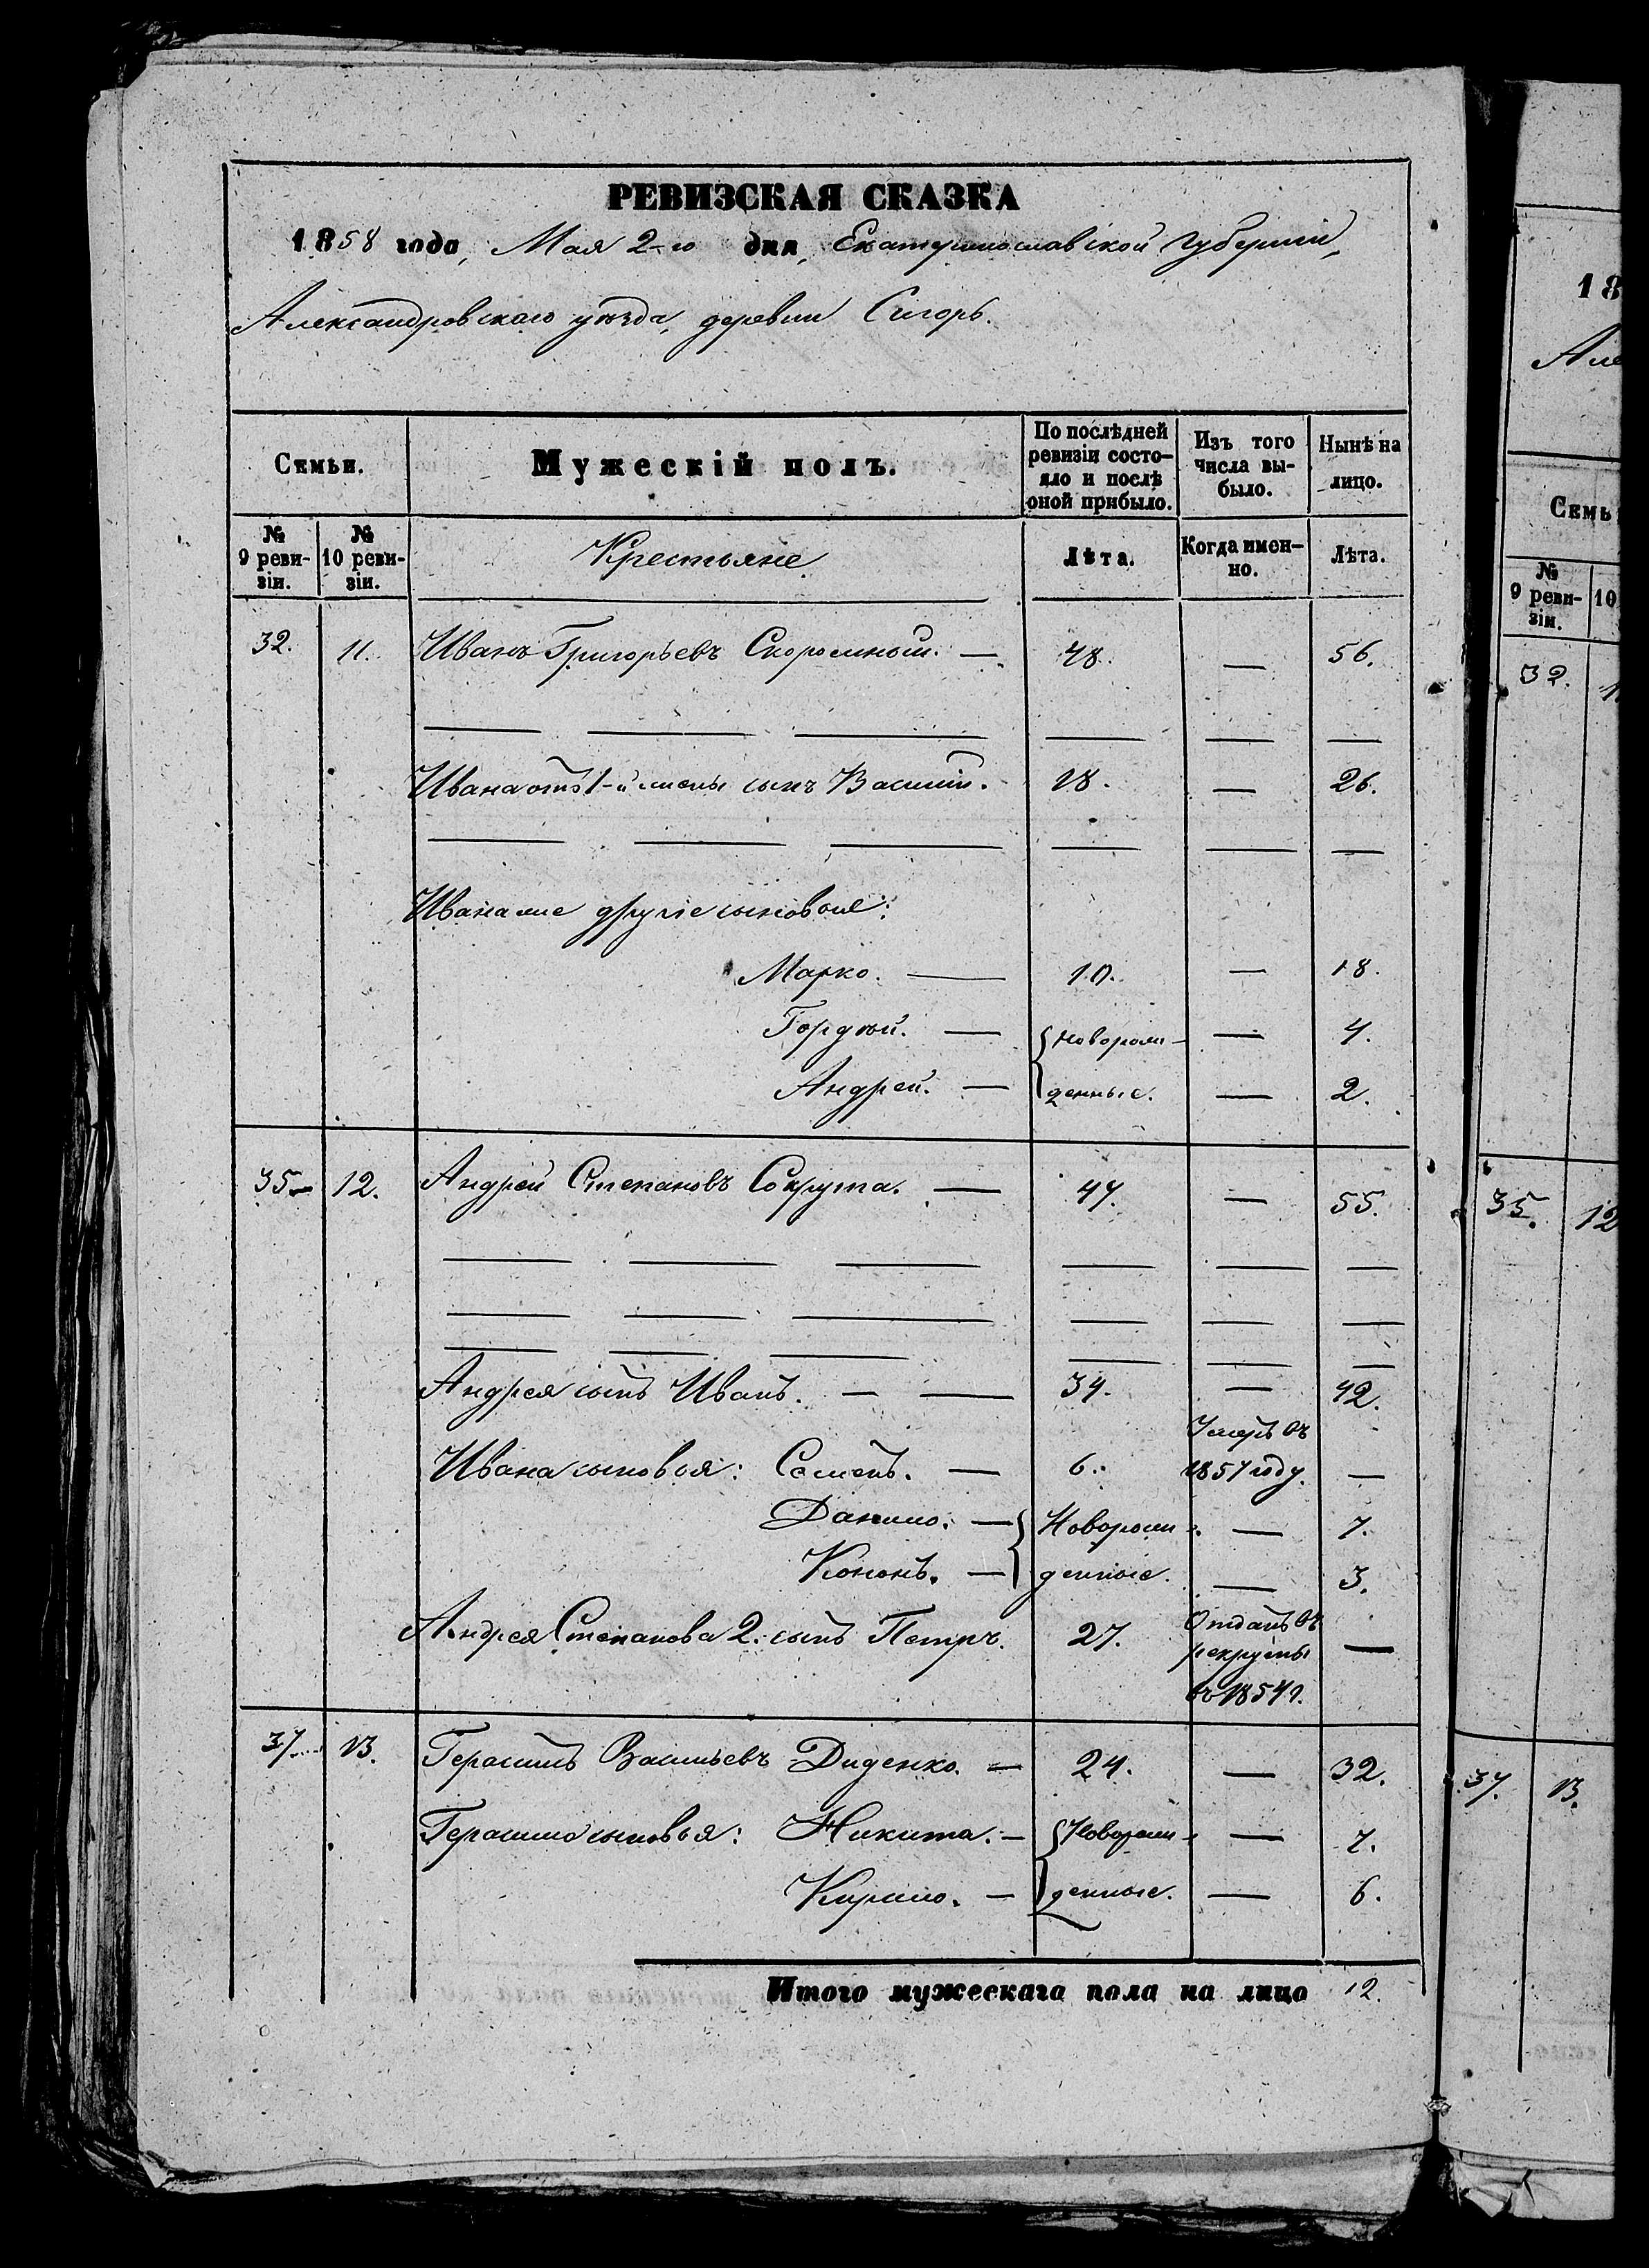 РЕВИЗСКАЯ СКАЗКА
1858 года, Мая 2-го дня, Екатеринославской губерніи,
Александровскаго уѣзда, деревни
Семьи.
Мужескій полъ.
По послѣдней ревизіи состо-
яло и послѣ оной прибыло.
Изъ того числа вы-
было.
Нынѣ на лицо.
№ 9 реви-
зіи.
№ 10 реви-
зіи.
Крестьяне
Лѣта.
Когда имен-
но.
Лѣта.
32. 11. Иванъ Григорьевъ Скоромный. — 48. — 56.
Ивана отъ 1-й жены сынъ Василій. 18. — 26.
Ивана же другіе сыновья:
Марко. — 10. — 18.
Гордѣй. — { Новорож- — 4.
Андрей. — денные. — 2.
35 — 12. Андрей Степановъ Сокрута. — 47. — 55.
Андрея сынъ Иванъ. — — 34. — 42.
Ивана сыновья: Семенъ. — 6. Умеръ въ 1857 году. —
Данило. — { Новорож- — 7.
Кононъ. — денные. — 3.
Андрея Степанова 2. сынъ Петръ. 27. Отданъ въ рекруты въ 1854 г. —
37. 13. Герасимъ Васильевъ Диденко. — 24. — 32.
Герасима сыновья: Никита. — { Новорож- — 7.
Кирило. — денные. — 6.
Итого мужескаго пола на лицо 12.
18
Але
Семь
№ 9 реви-
зіи.
10
32. 1
35. 12
37. 13.